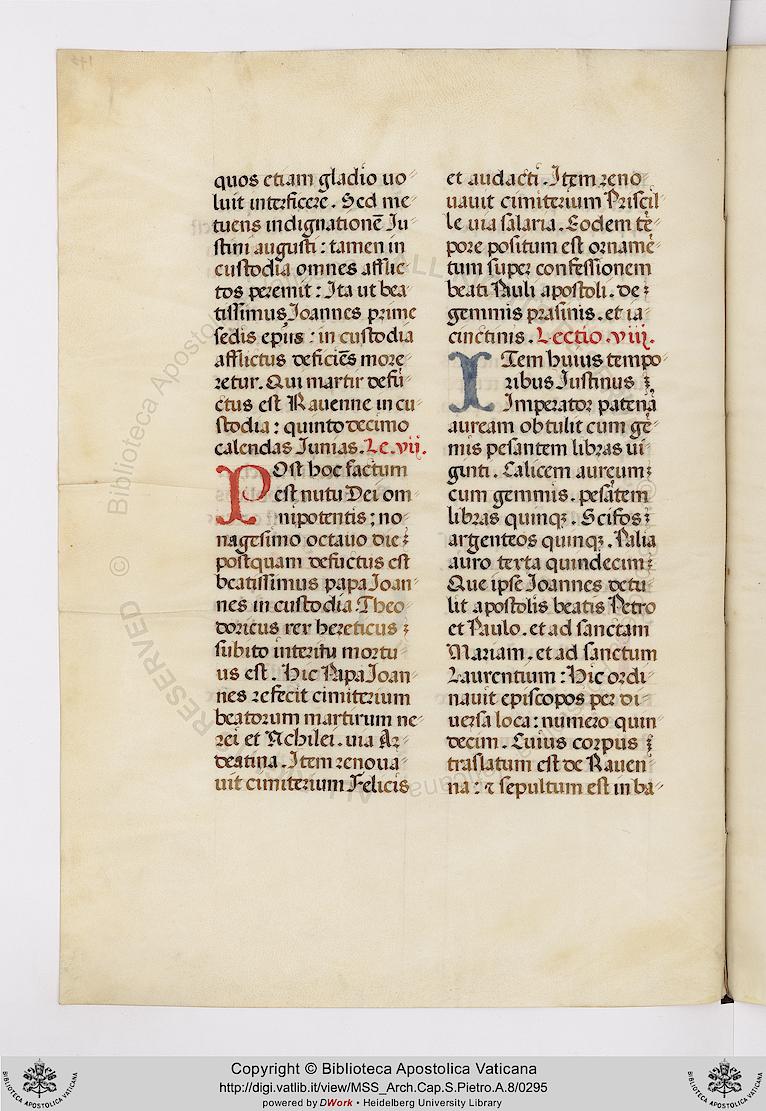 quos etiam gladio uo
luit interficere. Sed me
tuens indignationē Iu
stini augusti: tamen in
custodia omnes afflic
tos peremit: Ita ut bea
tissimus Ioannes prime
sedis ep̄us: in custodia
afflictus deficiēs more
retur. Qui martir defū
ctus est Rauenne in cu
stodia: quinto decimo
calendas Iunias. Le. vii.
POst hoc factum
est nutu Dei om
nipotentis; no
nagesimo octauo die
postquam defūctus est
beatissimus papa Ioan
nes in custodia. Theo
doricus rex hereticus
subito interitu mortu
us est. Hic Papa Ioan
nes refecit cimiterium
beatorum martirum ne
rei et Achilei. uia Ar
deatina. Item renoua
uit cimiterium Felicis
et audacti. Item reno
uauit cimiterium Priscil
le uia salaria. Eodem tē
pore positum est ornamē
tum super confessionem
beati Pauli apostoli. de
gemmis prasinis. et ia
cinctinis. Lectio. viii.
ITem huius tempo
ribus Iustinus
Imperator patenā
auream obtulit cum gē
mis pesantem libras ui
ginti. Calicem aureum
cum gemmis. pesātem
libras quinqꝫ. Scifos
argenteos quinqꝫ. Palia
auro texta quindecim
Que ipse Ioannes detu
lit apostolis beatis Petro
et Paulo. et ad sanctam
Mariam. et ad sanctum
Laurentium: Hic ordi
nauit episcopos per di
uersa loca: numero quin
decim. Cuius corpus
traslatum est de Rauen
na: ⁊ sepultum est in ba
Copyright © Biblioteca Apostolica Vaticana
http://digi.vatlib.it/view/MSS_Arch.Cap.S.Pietro.A.8/0295
powered by DWork • Heidelberg University Library